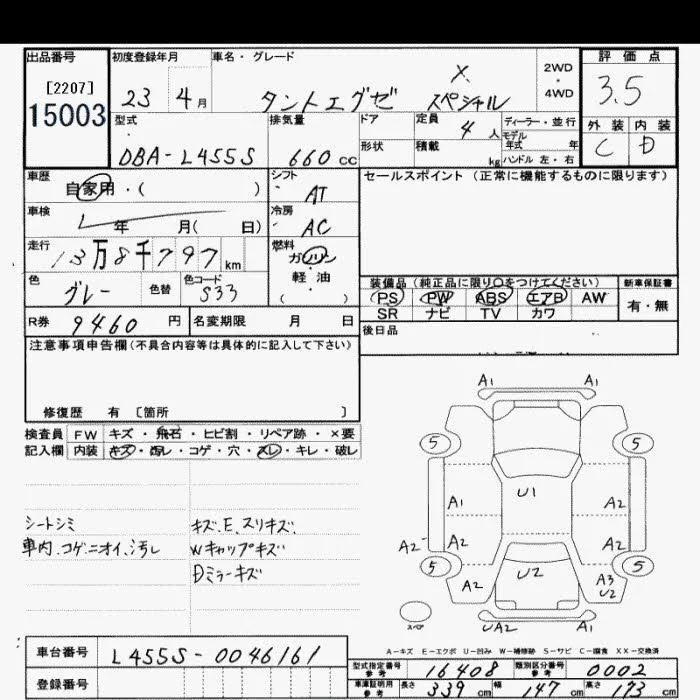 出品番号 初度登録年月 車名・グレード 評価点
[2207] 15003
23 4月 タントエグゼ X スペシャル 2WD・4WD 3.5
型式 排気量 ドア 定員 4人 ディーラー・並行 外装 内装
モデル年式 年
DBA-L455S 660cc 形状 積載 kg ハンドル 左・右 C D
車歴 自家用・( ) シフト AT セールスポイント(正常に機能するものに限ります)
車検 年 月( 日) 冷房 AC
走行 13万8千797km 燃料 ガソリン・軽油 ( )
色 グレー 色替 色コード S33
装備品(純正品に限り○をつけてください) 新車保証書
PS PW ABS エアB AW 有・無
SR ナビ TV カワ
R券 9460円 名変期限 月 日 後日品
注意事項申告欄(不具合内容等は具体的に記入して下さい)
修復歴 有 [箇所 ]
検査員 FW キズ・飛石・ヒビ割・リペア跡・×要
記入欄 内装 キズ・汚レ・コゲ・穴・スレ・キレ・破レ
シートシミ キズ、E、スリキズ、
車内、コゲ、ニオイ、汚レ Wキャップキズ
Dミラーキズ
A1 A1
5 5
U1
A1 A2
A2 A2 A2
5 5
U2
A2 A3 U2
スペア UA2 A1
A-キズ E-エクボ U-凹み W-補修跡 S-サビ C-腐食 XX-交換済
車台番号 L455S-0046161
登録番号
型式指定番号 参考 16408 類別区分番号 参考 0002
車庫証明用 参考 長さ 339cm 幅 147cm 高さ 173cm